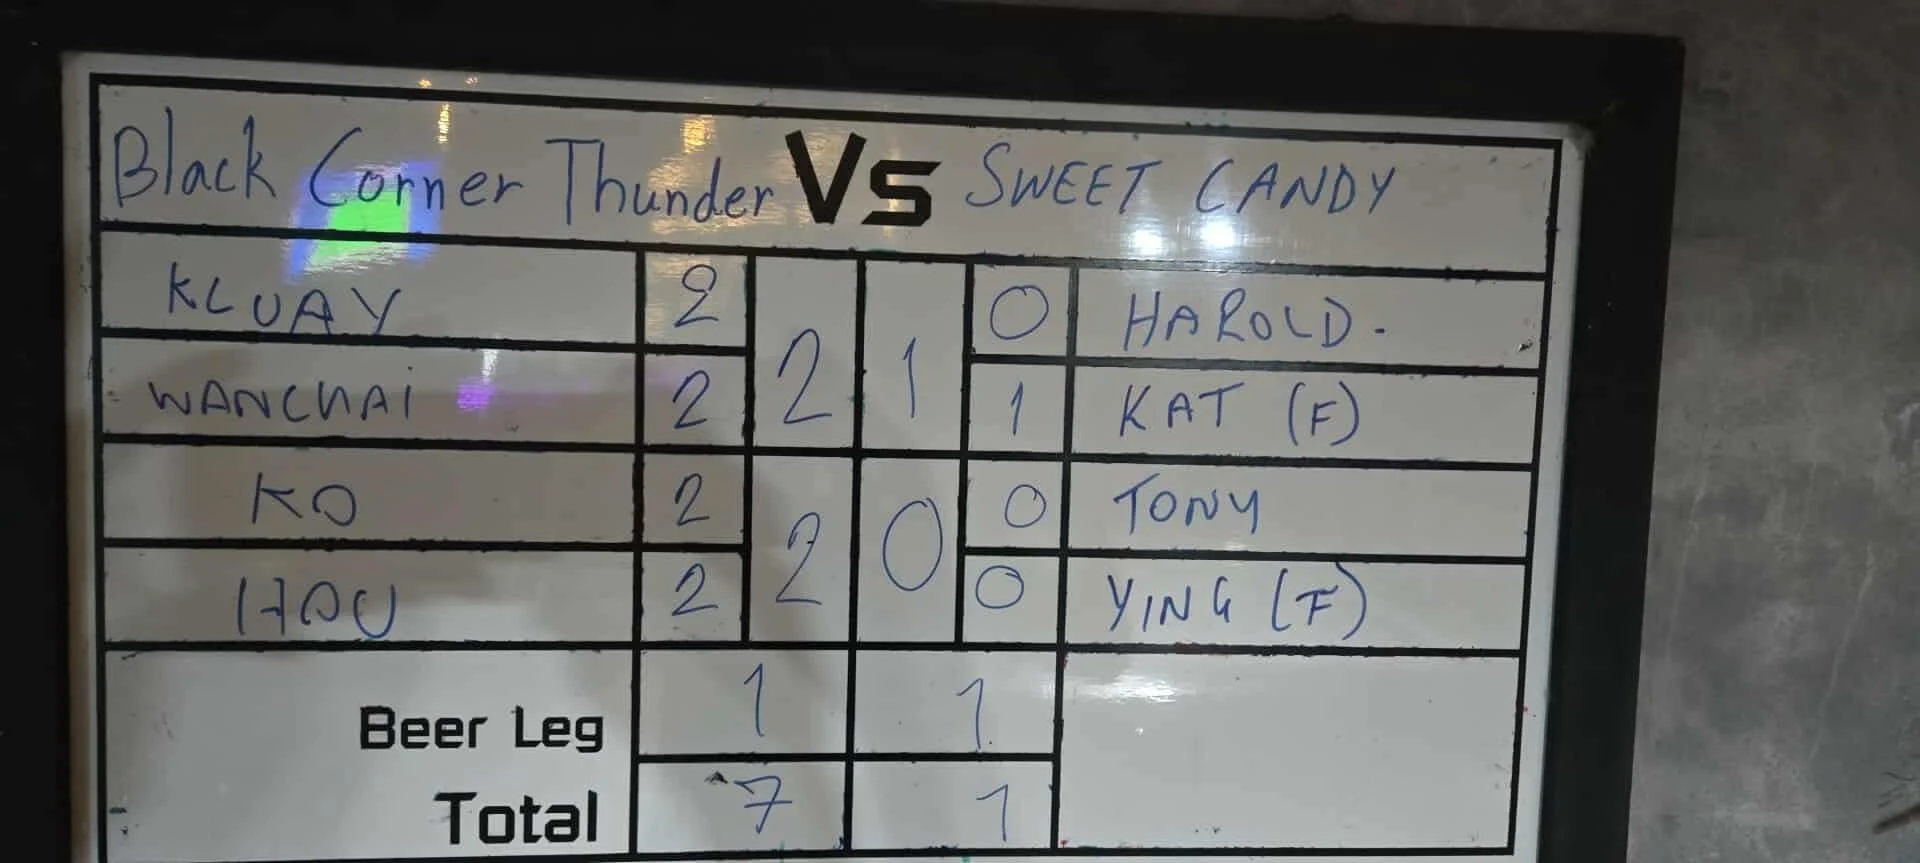 Black Corner Thunder Vs SWEET CANDY
KLUAY 2 0 HAROLD.
2 1
WANCHAI 2 1 KAT (F)
KO 2 0 TONY
2 0
HOU 2 0 YING (F)
Beer Leg 1 1
Total 7 1